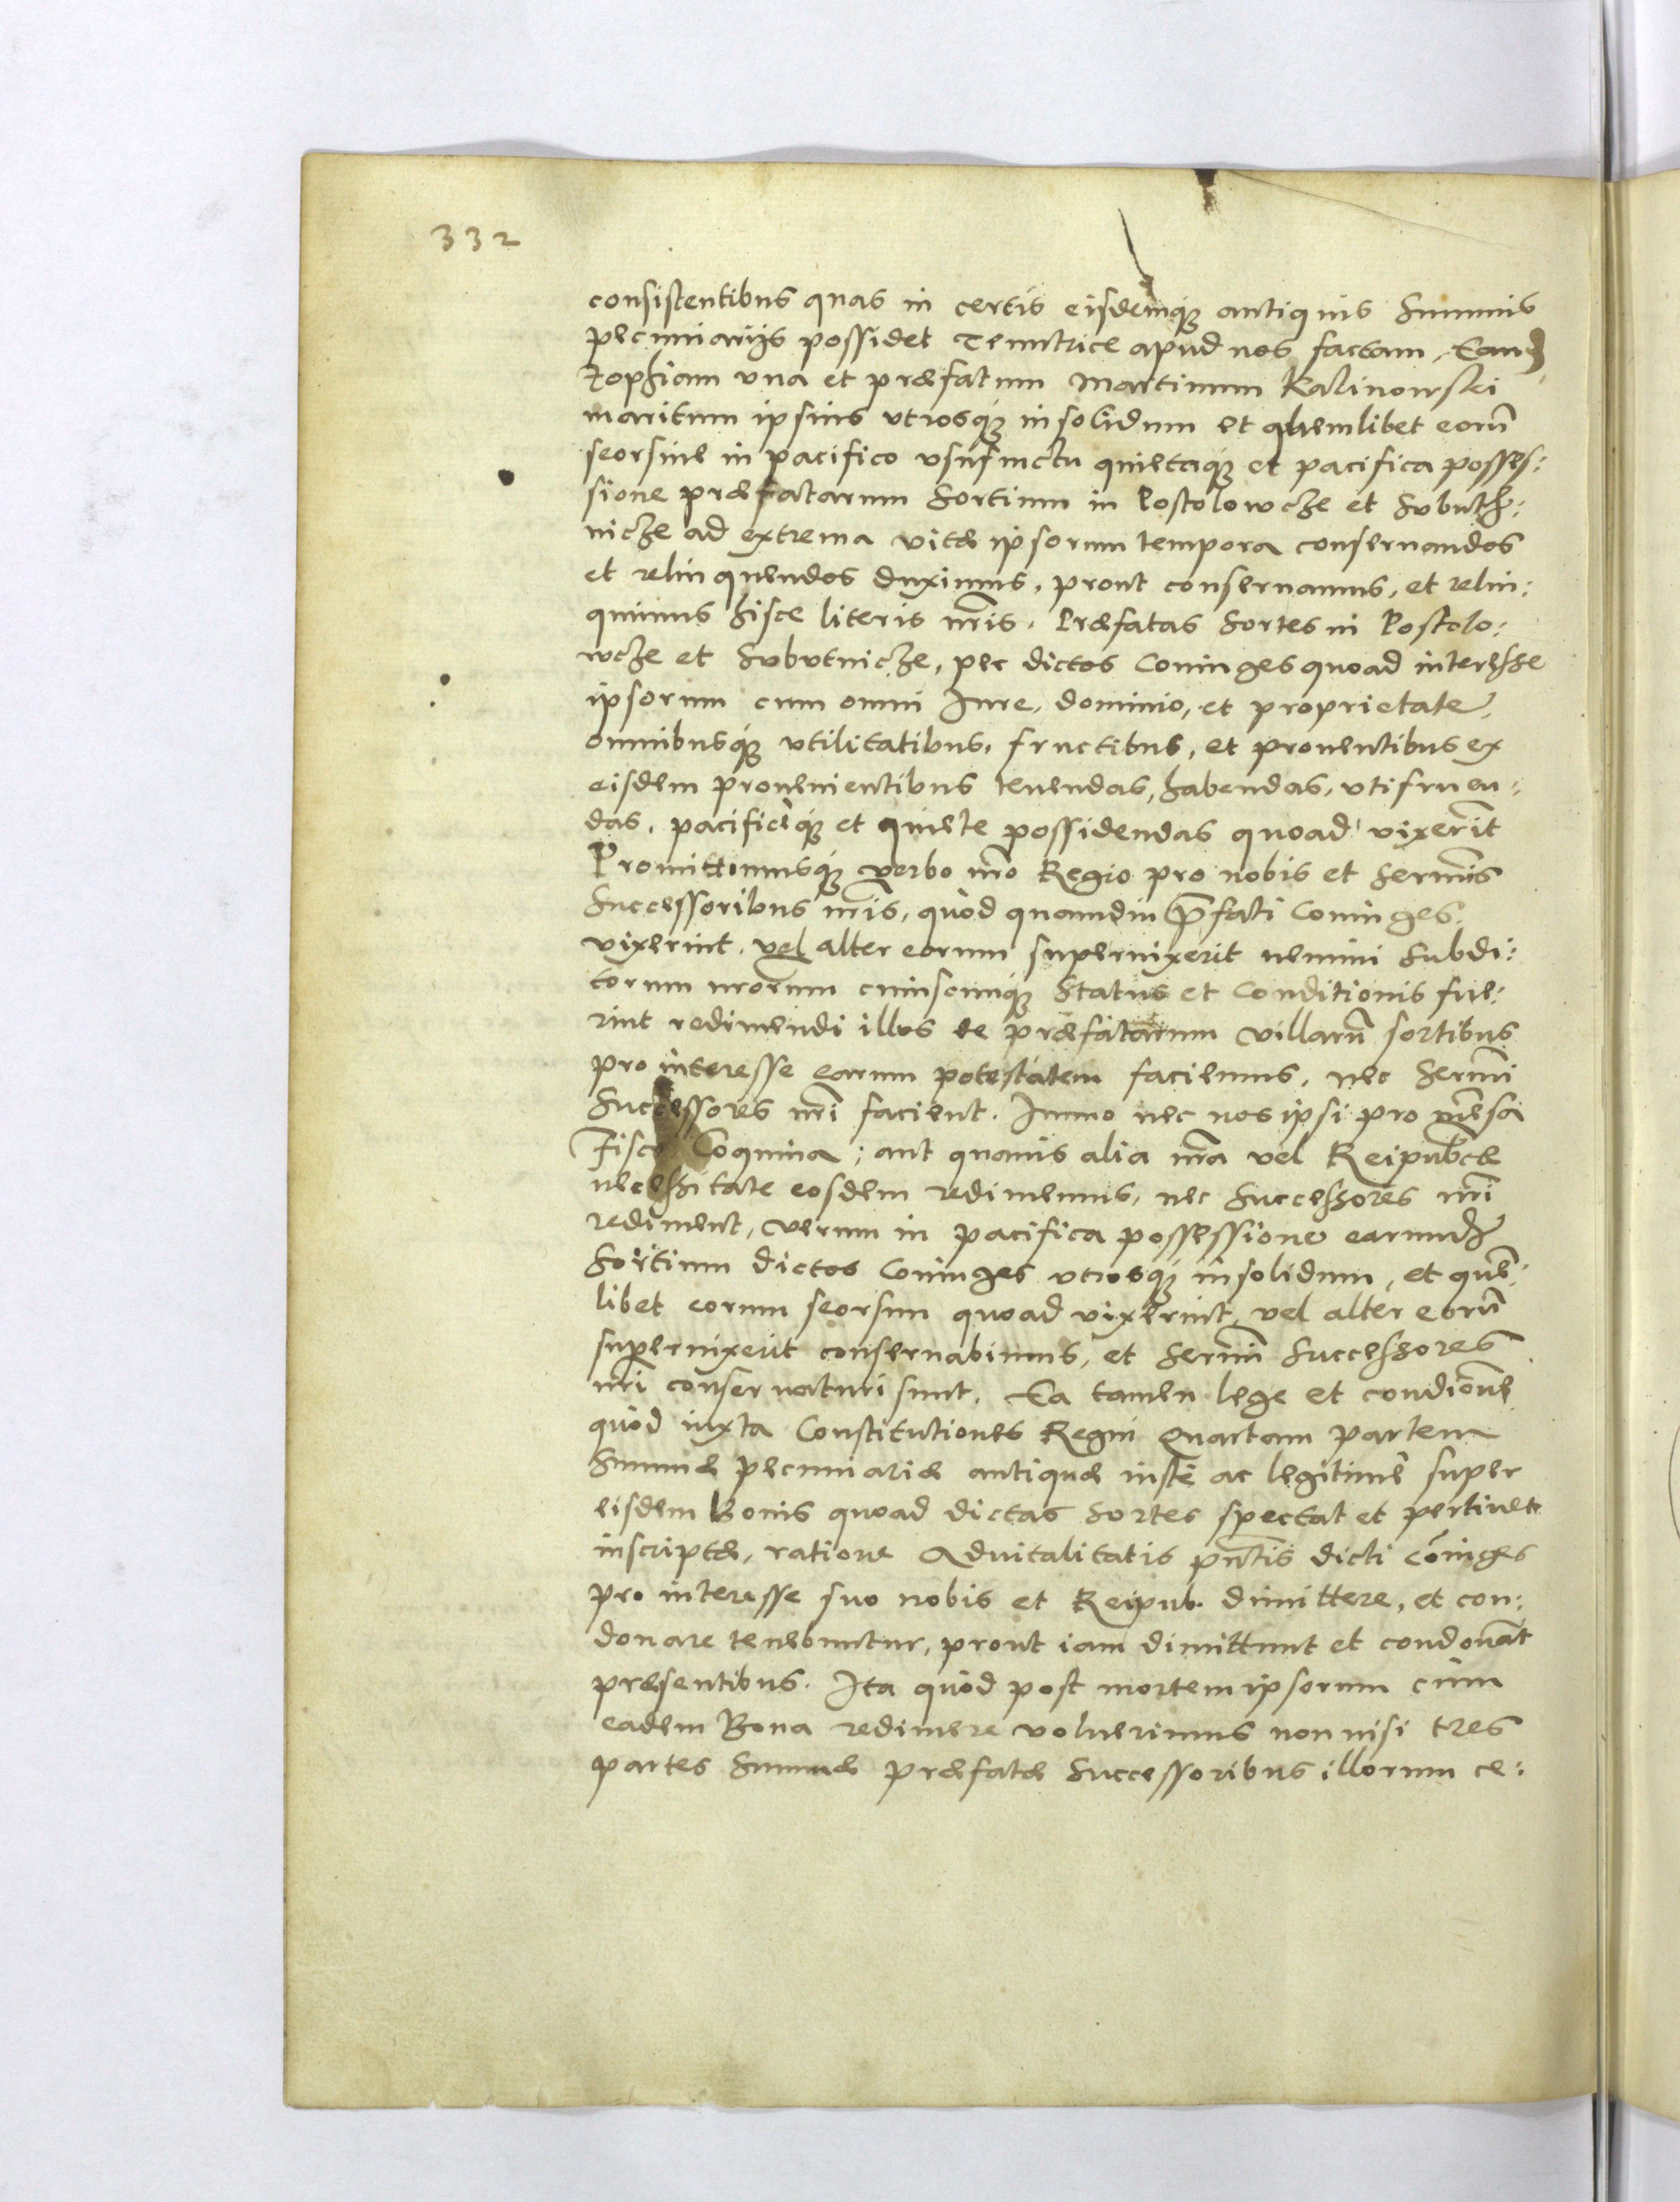 332
consistentibus quas in certis eisdemq́ꝫ antiquis Summis
pecuniarijs possidet Tenutrice apud nos factam, Eandꝫ
Zophiam vna et præfatum Martinum Kalinowskei
maritum ipsius vtrosq́ꝫ in solidum et quemlibet eorū
seorsiue in pacifico vsufructu quietaq́ꝫ et pacifica posses:
sione præfatarum Sortium in Postolowcze et
nicze ad extrema vitæ ipsorum tempora conseruandos
et relinquendos duximus, prout conseruamus, et relin:
quimus hisce literis nr̄is. Præfatas Sortes in Postolo:
wcze et Subutnicze, per dictos Coniuges quoad interesse
ipsorum cum omni Jure, dominio, et proprietate,
omnibusq́ꝫ vtilitatibus, fructibus, et prouentibus ex
eisdem prouenientibus tenendas, habendas, vtifruen:
das, pacificèq́ꝫ et quiete possidendas quoad vixerīt
Promittimusq́ꝫ verbo nr̄o Regio pro nobis et Serm̄is
Successoribus nr̄is, quòd quamdiu p̄fati Coniuges
vixerint, vel alter eorum superuixerit nemini Subdi:
torum nrōrum cuiuscunq́ꝫ Status et Conditionis fue:
rint redimendi illos de præfatarum villarū sortibus
pro interesse earum potestatem faciemus, nec Serm̄i
Successores nr̄i facient. Immo nec nos ipsi pro mēsa
Fisco Coquina; aut quauis alia nr̄a vel Reipub̄cæ
necessitate eosdem redimemus, nec Successores nr̄i
rediment, verum in pacifica possessione earundꝫ
Sortium dictos Coniuges vtrosq́ꝫ insolidum, et quē:
libet eorum seorsim quoad vixerint, vel alter eorū
superuixerit conseruabimus, et Serm̄i Successores
nr̄i conseruaturi sunt. Ea tamen lege et condiōne
quòd iuxta Constitutiones Regni Quartam partem
Summæ pecuniariæ antiquæ iustè ac legitimè super
eisdem Bonis quoad dictas Sortes spectat et pertinet
inscriptæ, ratione Aduitalitatis pn̄tis dicti Cōiuges
pro interesse suo nobis et Reipub. dimittere, et con:
donare tenebuntur, prout iam dimittunt et condonāt
præsentibus. Ita quòd post mortem ipsorum cùm
eadem Bona redimere voluerimus non nisi tres
partes Summæ præfatæ Successoribus illorum ce: